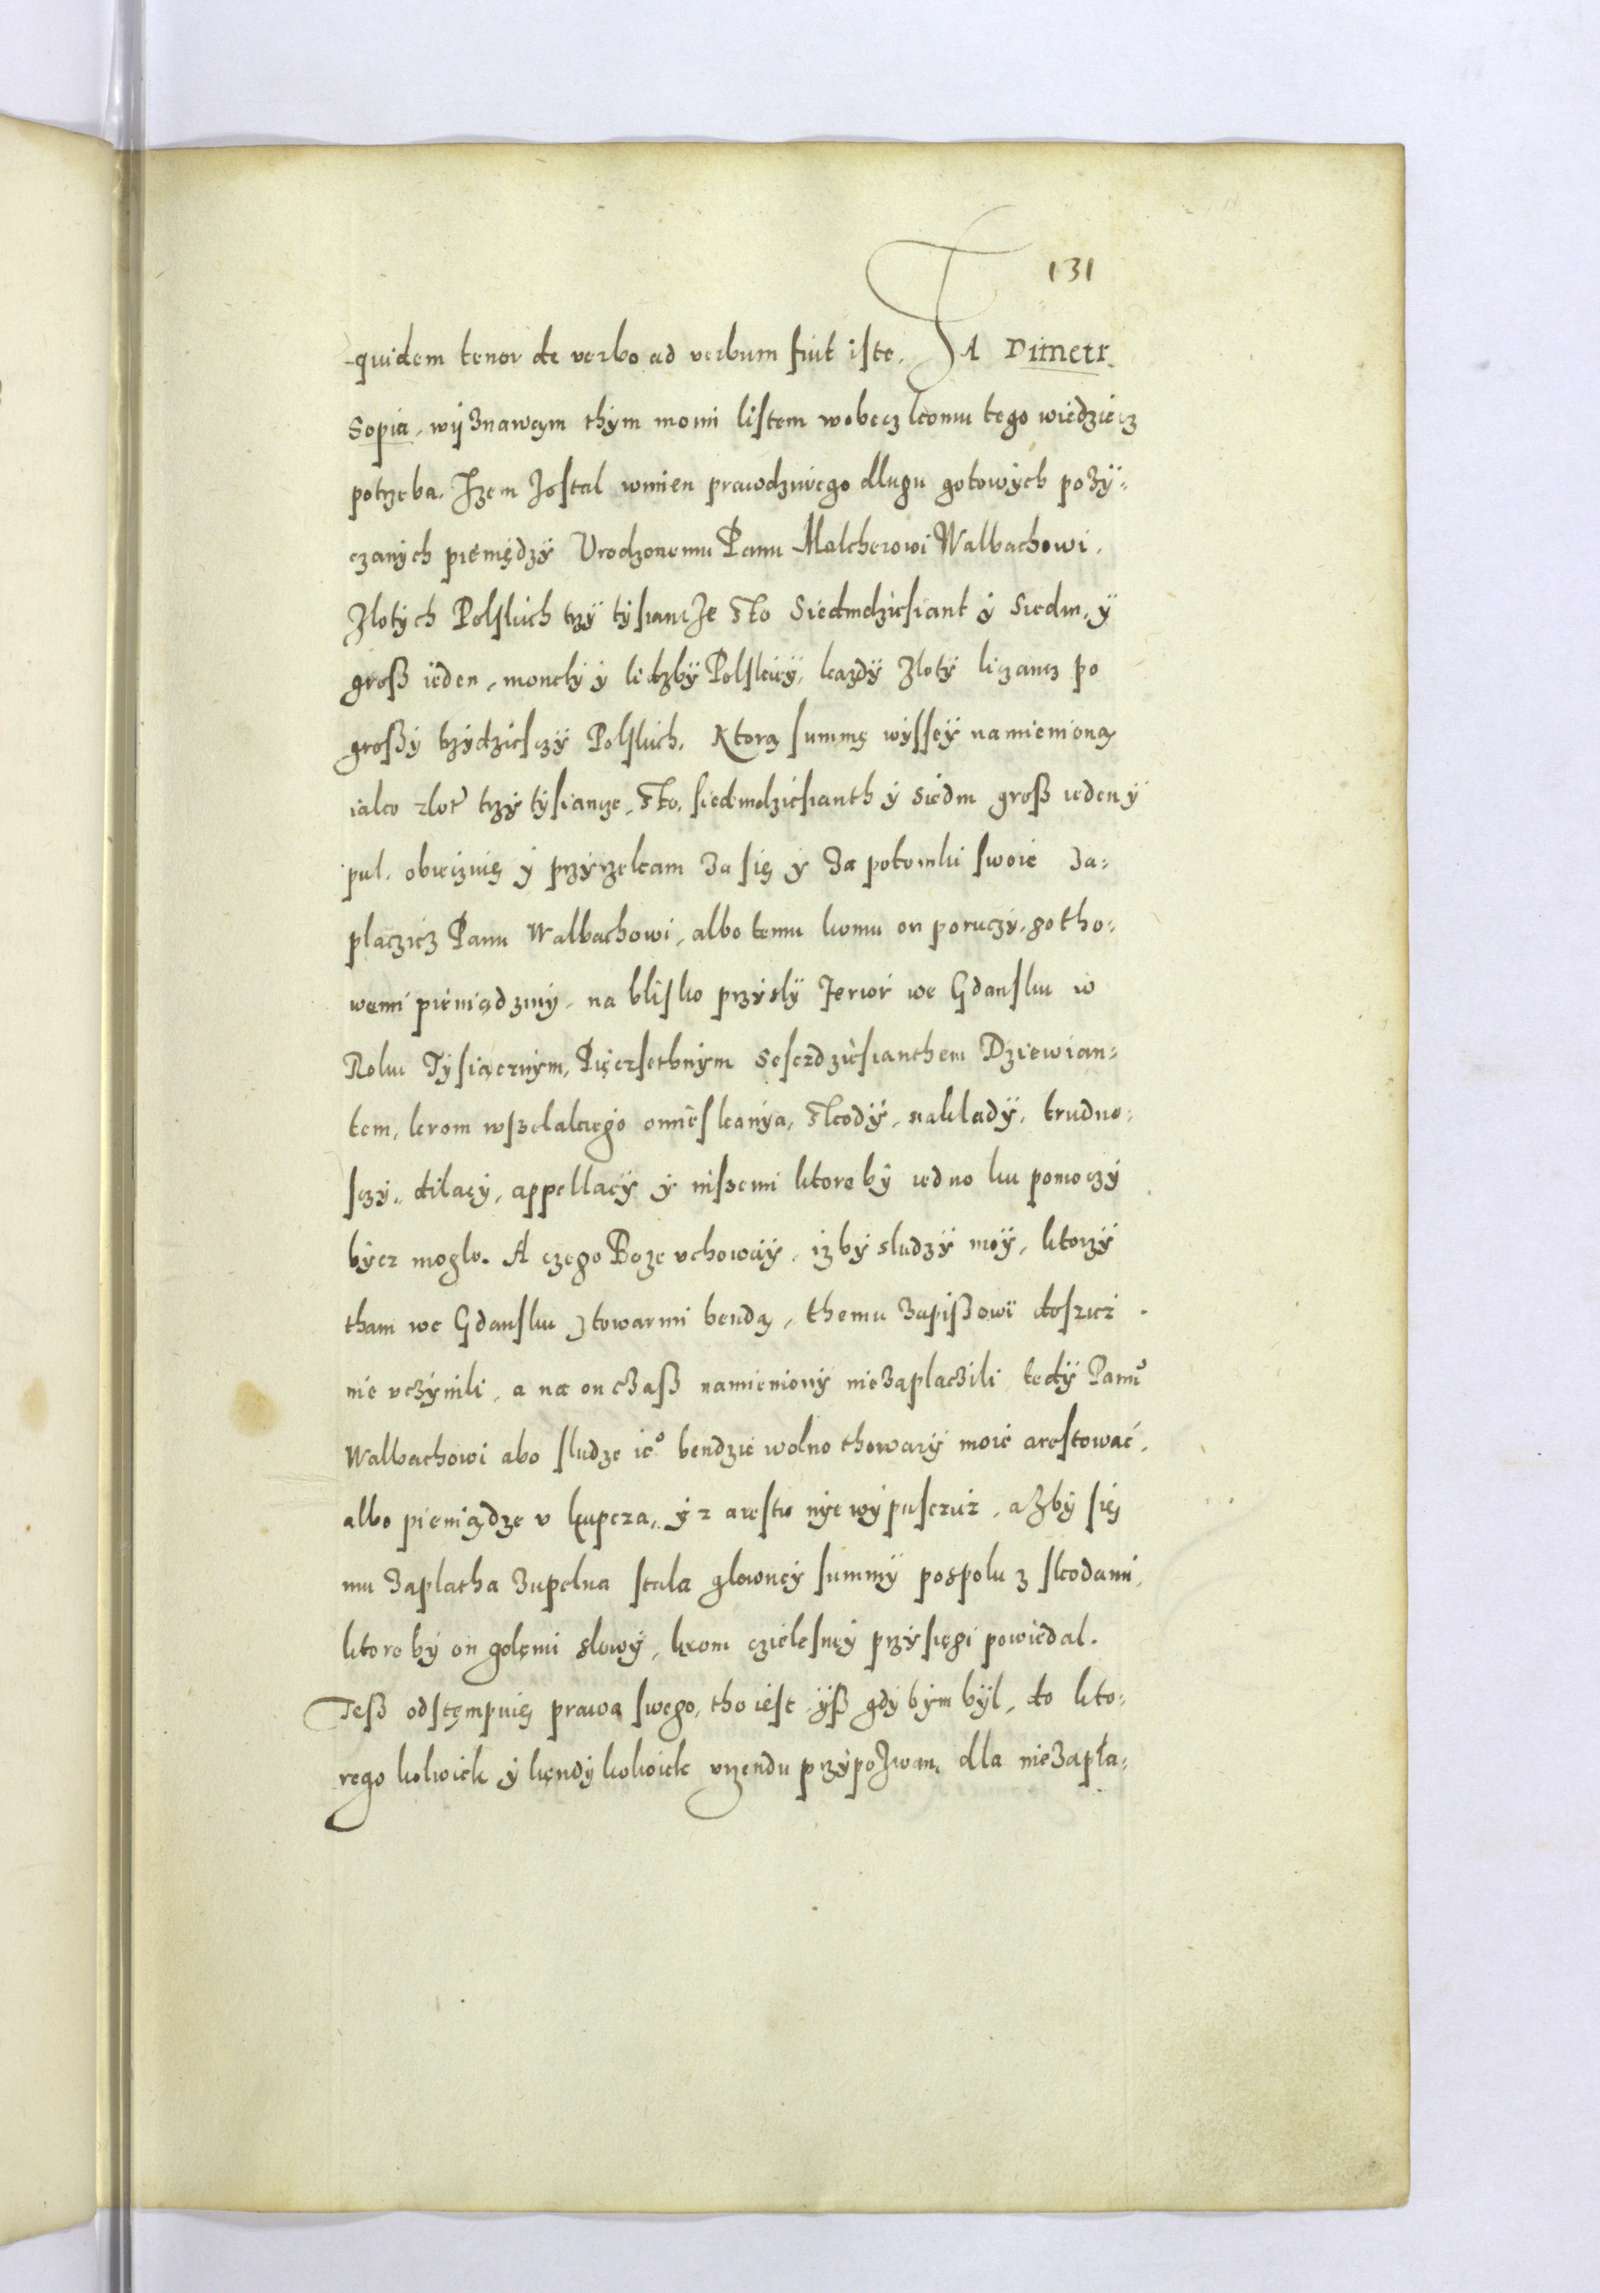 131
quidem tenor de verbo ad verbum fuit iste. JA Dimetr
Sopia, wÿznawam thÿm moim listem wobecz komu tego wiedziecz
potrzeba. Izem Zostal winien prawdziwego dlugu gotowÿch pozÿ=
czanÿch pieniędzÿ Urodzonemu Panu Malcherowi Walbachowi.
Zlotÿch Polskich trzÿ tÿsiancze sto Siedmdziesiant ÿ Siedm, ÿ
grosß ieden, monetÿ ÿ lidzbÿ Polskieÿ, kazdÿ Zlotÿ liczancz po
grosßÿ trzÿdziesczÿ Polskich. Ktorą summę wÿsseÿ namienioną
iako zlot trzÿ tÿsiancze, sto, siedmdziesianth ÿ siedm grosß ieden ÿ
pul. obieczuię ÿ przÿrzekam za się ÿ za potomki swoie za=
placzicz Panu Walbachowi, albo temu komu on poruczÿ, gotho=
wemi pieniądzmÿ, na blisko przÿslÿ Jerwÿ we Gdansku w
Roku Tÿsiącznÿm, Pięczsethnÿm Sesczdziesianthem Dziewian=
tem, krom wszelakiego omieskanÿa, skodÿ, nakladÿ, trudno=
sczÿ, dilacÿ, appellacÿ ÿ niszemi ktore bÿ iedno ku pomoczÿ
bÿcz moglo. A czego Boze uchowaÿ, izbÿ sludzÿ moÿ, ktorzÿ
tham we Gdansku z towarmi bendą, themu zapisßowi doszicz
nie uczÿnili, a na on czasß namienionÿ niezaplaczili tedÿ Panu
Walbachowi abo sludze ieº bendzie wolno thowarÿ moie arestować,
albo pieniądze u kupcza, ÿ z arestu nÿe wÿpusczicz, azbÿ się
mu zaplatha zupelna stala glowneÿ summÿ pospolu z skodami,
ktore bÿ on golęmi slowÿ, krom czielesneÿ przÿsięgi powiedal.
Tesß odstęmpuię prawa swego, tho iest ÿsß gdÿ bÿm bÿl, do kto=
rego kolwiek ÿ kendÿ kolwiek urzendu przÿpozwan, dla niezapla=